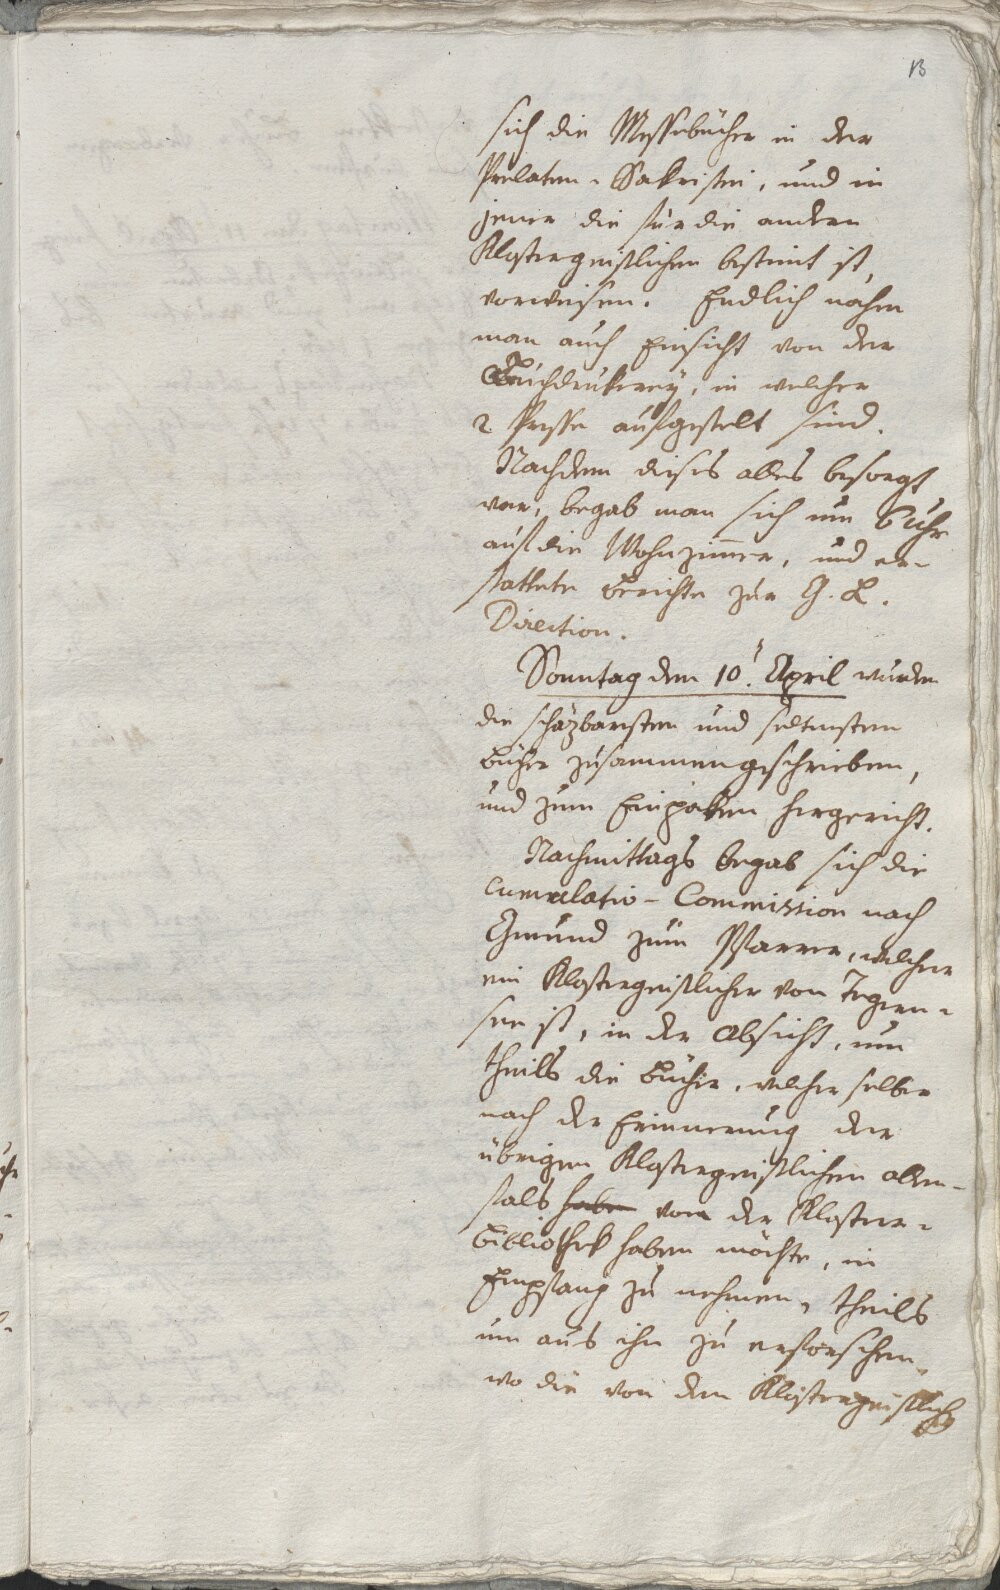 13
sich die Meßbücher in der
Prelaten-Sakristei, und in
jener die für die andern
Klostergeistlichen bestimt ist,
vorweisen. Endlich nahm
man auch Einsicht von der
Buchdrukerey, in welcher
2 Presse aufgestelt sind.
Nachdem dieses alles besorgt
war, begab man sich um 6 Uhr
auf die Wohnzimmer, und er-
stattete Berichte zur G. L.
Direction.
Sonntag den 10t. April wurden
die schäzbarsten und seltensten
Bücher zusammengeschrieben,
und zum Einpaken hergericht.
Nachmittags begab sich die
Cumulativ-Commission nach
Gmund zum Pfarrer, welcher
ein Klostergeistlicher von Tegern-
see ist, in der Absicht, um
theils die Bücher, welcher selber
nach der Erinnerung der
übrigen Klostergeistlichen allen-
fals haben von der Kloster-
bibliothek haben möchte, in
Empfang zu nehmen, theils
um aus ihn zu erforschen,
wo die von den Klostergeistlich